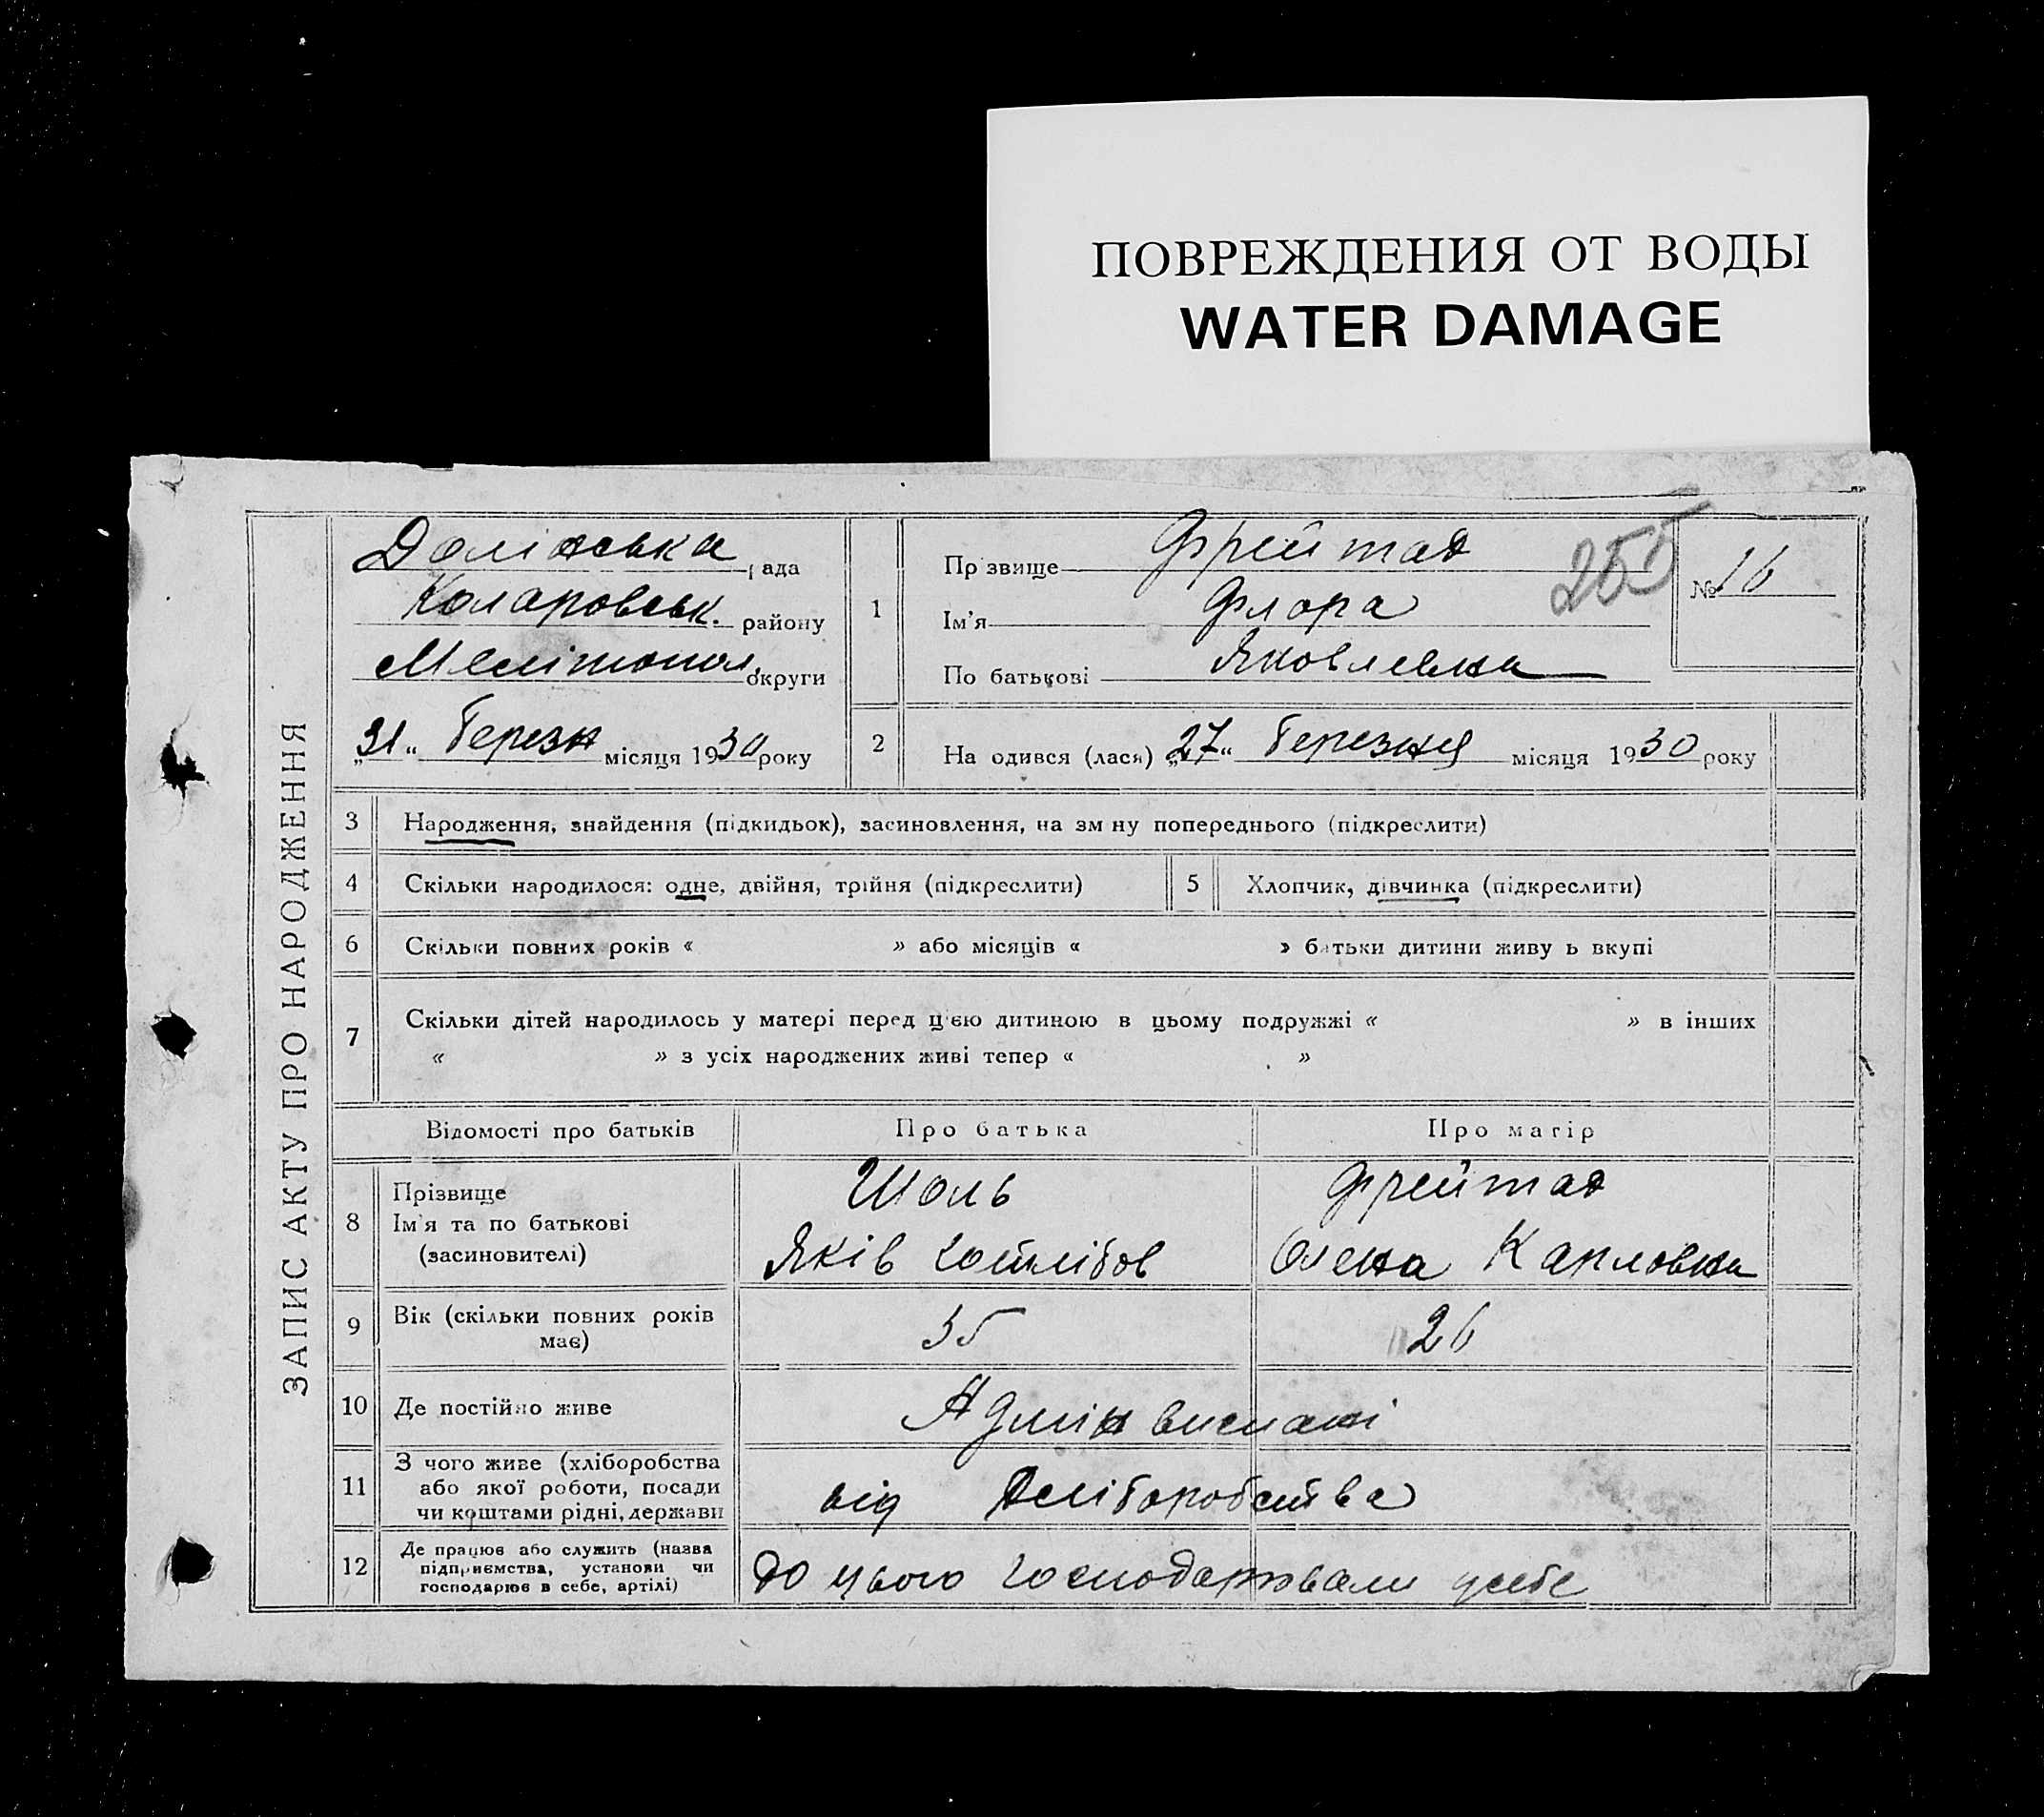 ПОВРЕЖДЕНИЯ ОТ ВОДЫ
WATER DAMAGE
ЗАПИС АКТУ ПРО НАРОДЖЕННЯ
Долінська рада
Коларовськ. району
Мелітопол. округи
„31“ Березн місяця 1930 року
1
Пр звище Фрейтаг
Ім'я Флора
По батькові Яковлевна
255
№ 16
2 На одився (лася) „27“ Березня місяця 1930 року
3 Народження, знайдення (підкидьок), засиновлення, на зм ну попереднього (підкреслити)
4 Скільки народилося: одне, двійня, трійня (підкреслити)
5 Хлопчик, дівчинка (підкреслити)
6 Скільки повних років « » або місяців « » батьки дитини живу ь вкупі
7 Скільки дітей народилось у матері перед цією дитиною в цьому подружжі « » в інших
« » з усіх народжених живі тепер « »
Відомості про батьків Про батька Про матір
8 Прізвище
Ім'я та по батькові
(засиновителі)
Шоль
Яків Готлібов
Фрейтаг
Олена Карловна
9 Вік (скільки повних років
має)
35 26
10 Де постійно живе
Адмін вислані
11 З чого живе (хліборобства
або якої роботи, посади
чи коштами рідні, держави
від хліборобства
12 Де працює або служить (назва
підприємства, установи чи
господарює в себе, артілі)
до цього господарювали усебе